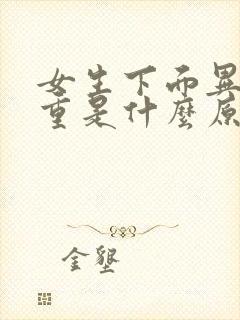 女生下面異
重是什麼原
金墾